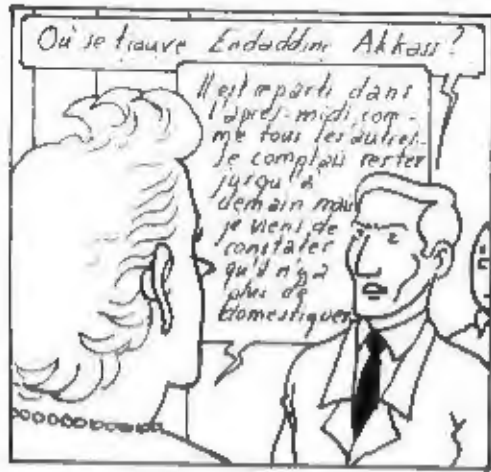 Où se trouve Endaddine Akkass ?
Il est reparti dans
l'après-midi com-
me tous les autres.
Je comptais rester
jusqu'à
demain mais
je viens de
constater
qu'il n'y a
plus de
domestiques